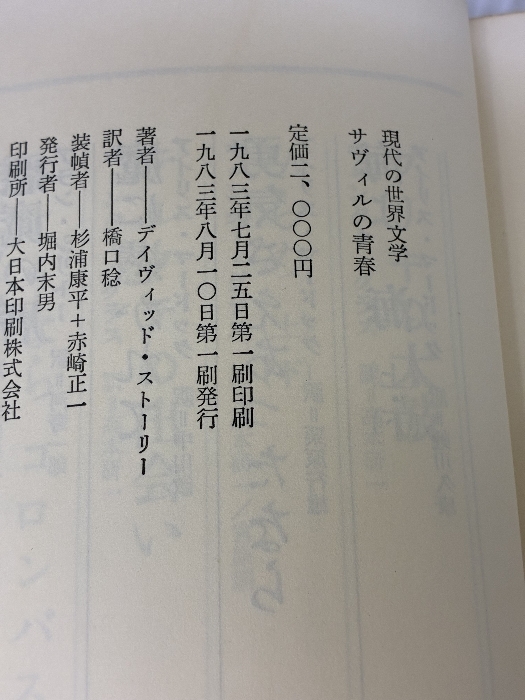 現代の世界文学
サヴィルの青春
定価二、〇〇〇円
一九八三年七月二五日第一刷印刷
一九八三年八月一〇日第一刷発行
著者――デイヴィッド・ストーリー
訳者――橋口稔
装幀者――杉浦康平+赤崎正一
発行者――堀内末男
印刷所――大日本印刷株式会社